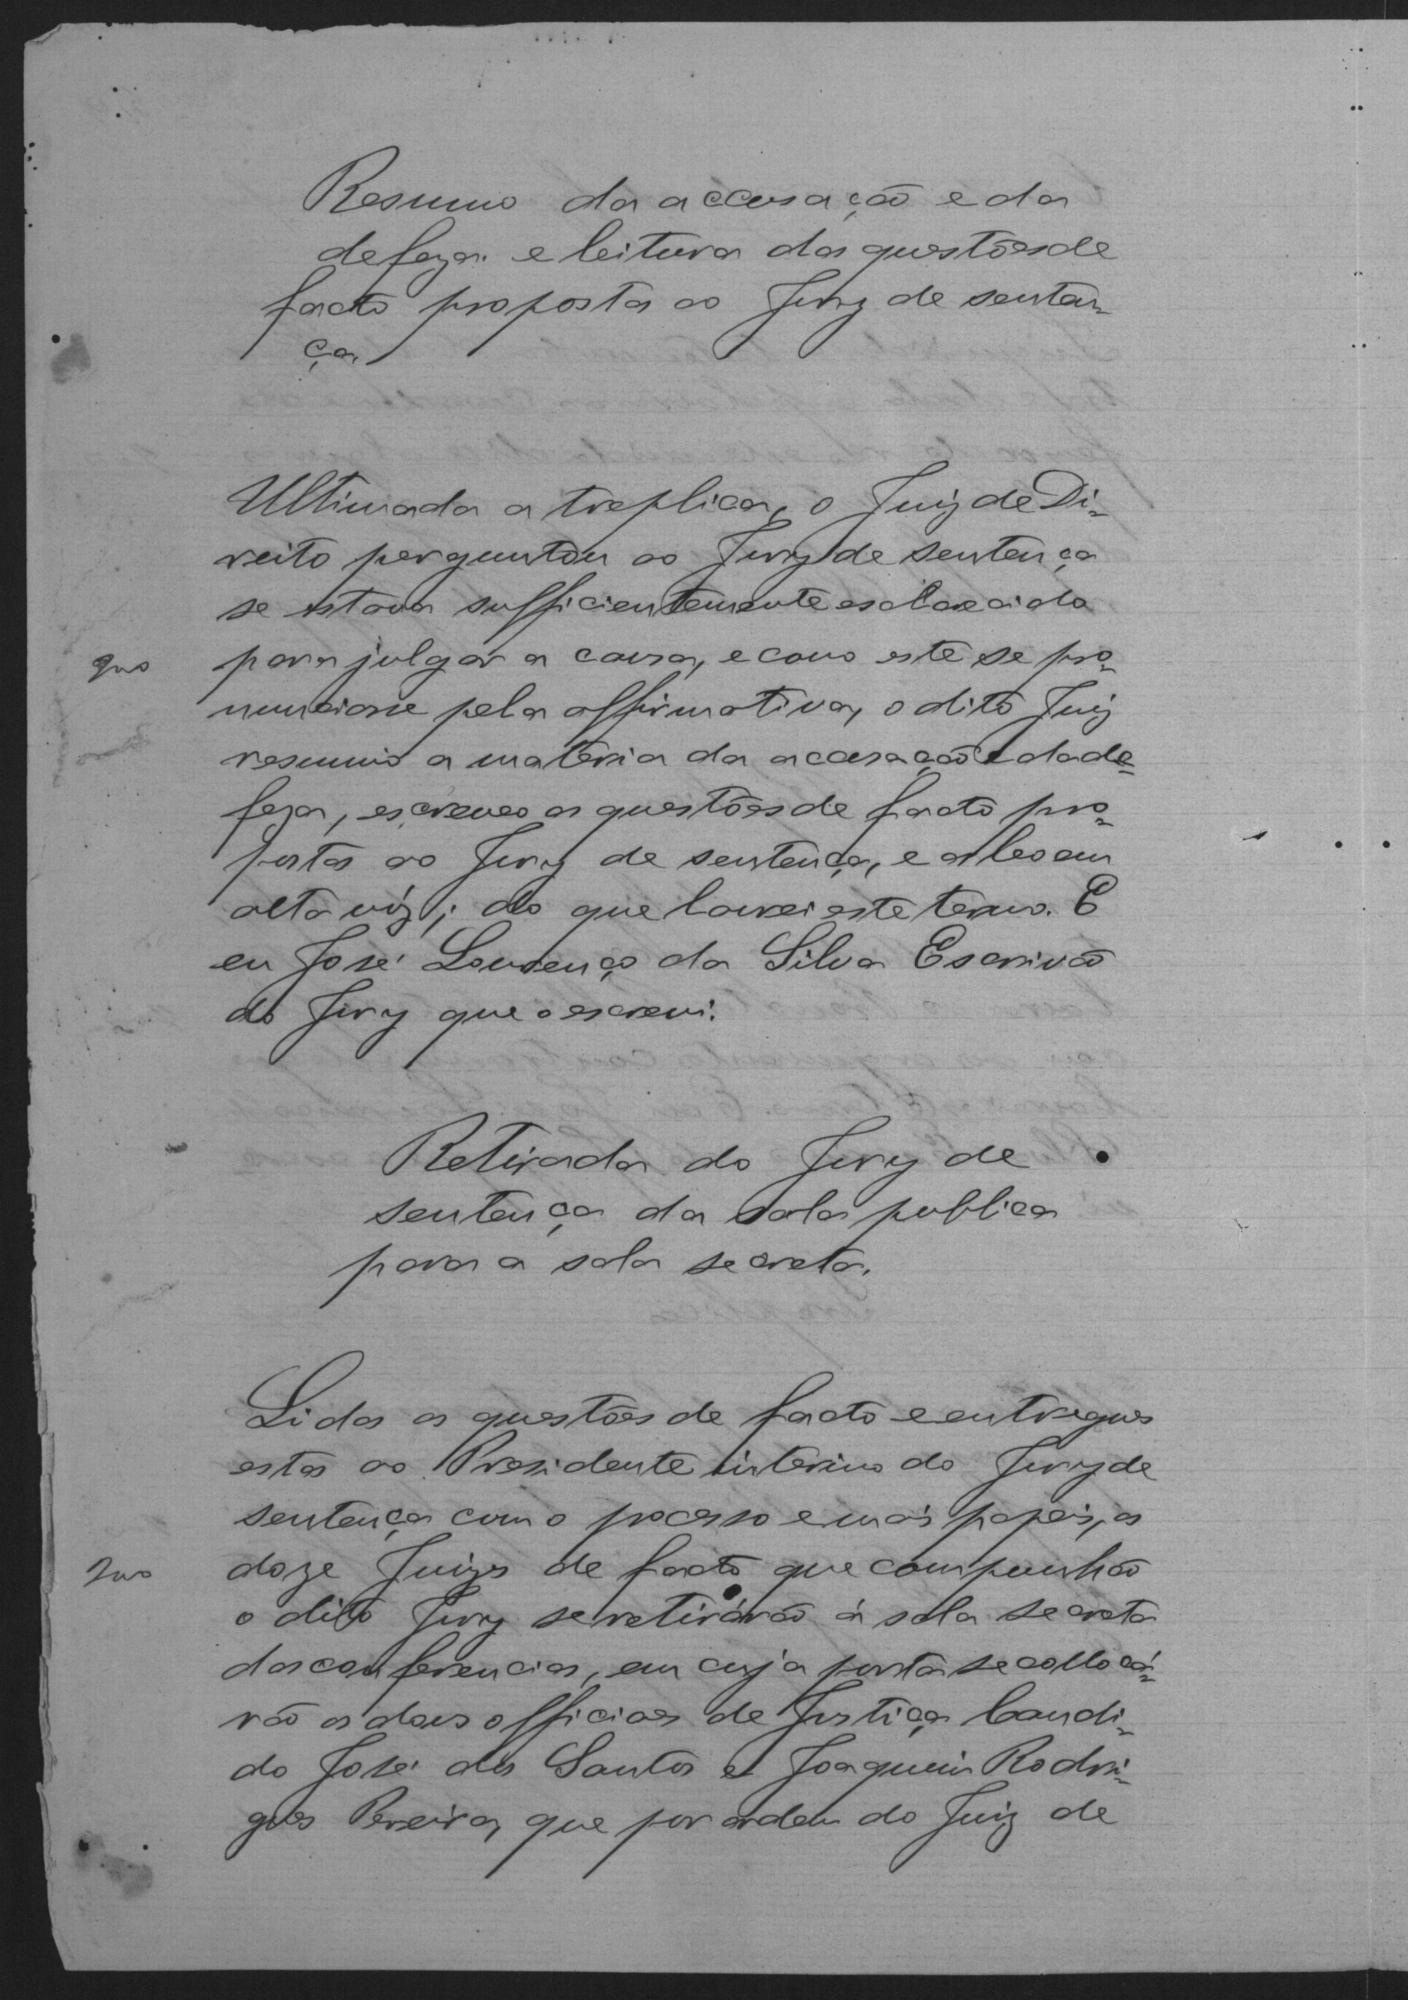 Resumo da accusação e da
defeza e leitura das questões de
facto proposta ao Jury de senten-
ça
Ultimada a treplica, o Juiz de Di-
reito perguntou ao Jury de sentença
se estava sufficientemente esclarecido
para julgar a causa, e como este se pro-
nunciasse pela affirmativa, o dito Juiz
resumio a materia da accusação e da de-
feza, escreveo as questões de facto pro-
postas ao Jury de sentença, e as leo em
alta vóz; do que lavrei este termo. E
eu José Lourenço da Silva Escrivão
do Jury que o escrevi.
Retirada do Jury de
sentença da sala publica
para a sala secreta.
Lidas as questões de facto e entregues
estas ao Presidente interino do Jury de
sentença com o processo e mais papeis, os
doze Juizes de facto que compunhão
o dito Jury se retirárão á sala secreta
das conferencias, em cuja porta se collocá-
rão os dois officiaes de Justiça Candi-
do José dos Santos e Joaquim Rodri-
gues Pereira, que por ordem do Juiz de